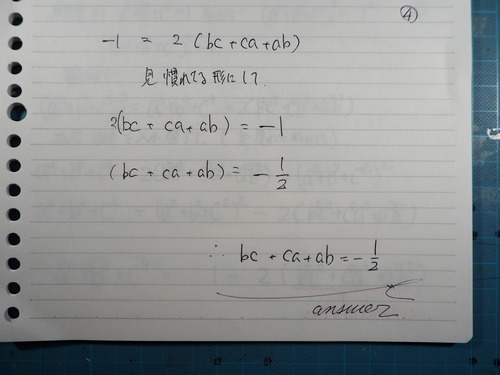 ④
-1 = 2 (bc + ca + ab)
見慣れてる形にして.
2(bc + ca + ab) = -1
(bc + ca + ab) = -1/2
∴ bc + ca + ab = -1/2
answer